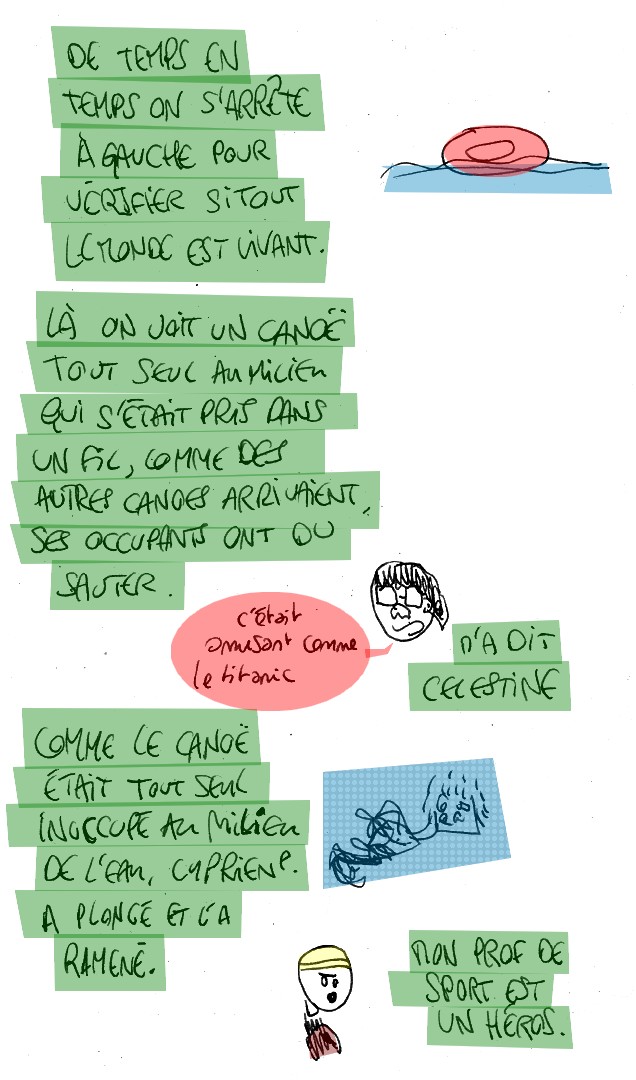 DE TEMPS EN
TEMPS ON S'ARRÊTE
À GAUCHE POUR
VÉRIFIER SI TOUT
LE MONDE EST VIVANT.
LÀ ON VOIT UN CANOË
TOUT SEUL AU MILIEU
QUI S'ÉTAIT PRIS DANS
UN FIL, COMME DES
AUTRES CANOES ARRIVAIENT,
SES OCCUPANTS ONT DU
SAUTER.
c'était
amusant comme
le titanic
M'A DIT
CELESTINE
COMME LE CANOË
ÉTAIT TOUT SEUL
INOCCUPÉ AU MILIEU
DE L'EAU, CYPRIEN P.
A PLONGÉ ET L'A
RAMENÉ.
MON PROF DE
SPORT EST
UN HÉROS.